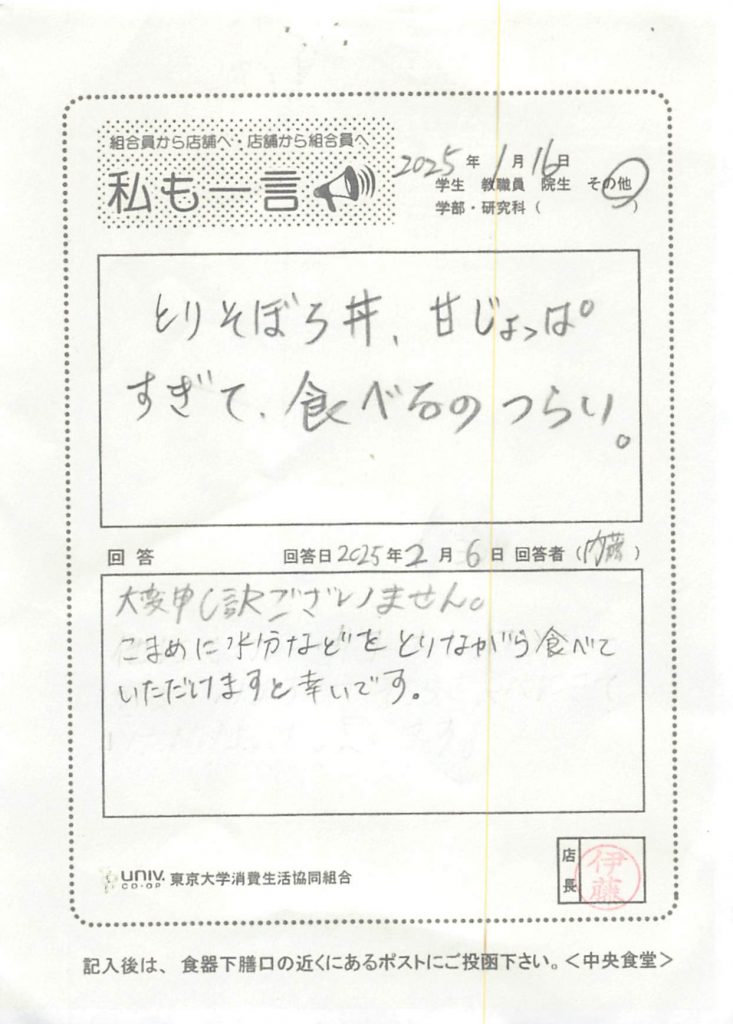 組合員から店舗へ・店舗から組合員へ
私も一言
2025年1月16日
学生 教職員 院生 その他
学部・研究科( )
とりそぼろ丼、甘じょっぱ
すぎて、食べるのつらい。
回答 回答日2025年2月6日 回答者(内藤)
大変申し訳ございません。
こまめに水分などをとりながら食べて
いただけますと幸いです。
UNIV. CO-OP 東京大学消費生活協同組合
店長 伊藤
記入後は、食器下膳口の近くにあるポストにご投函下さい。<中央食堂>